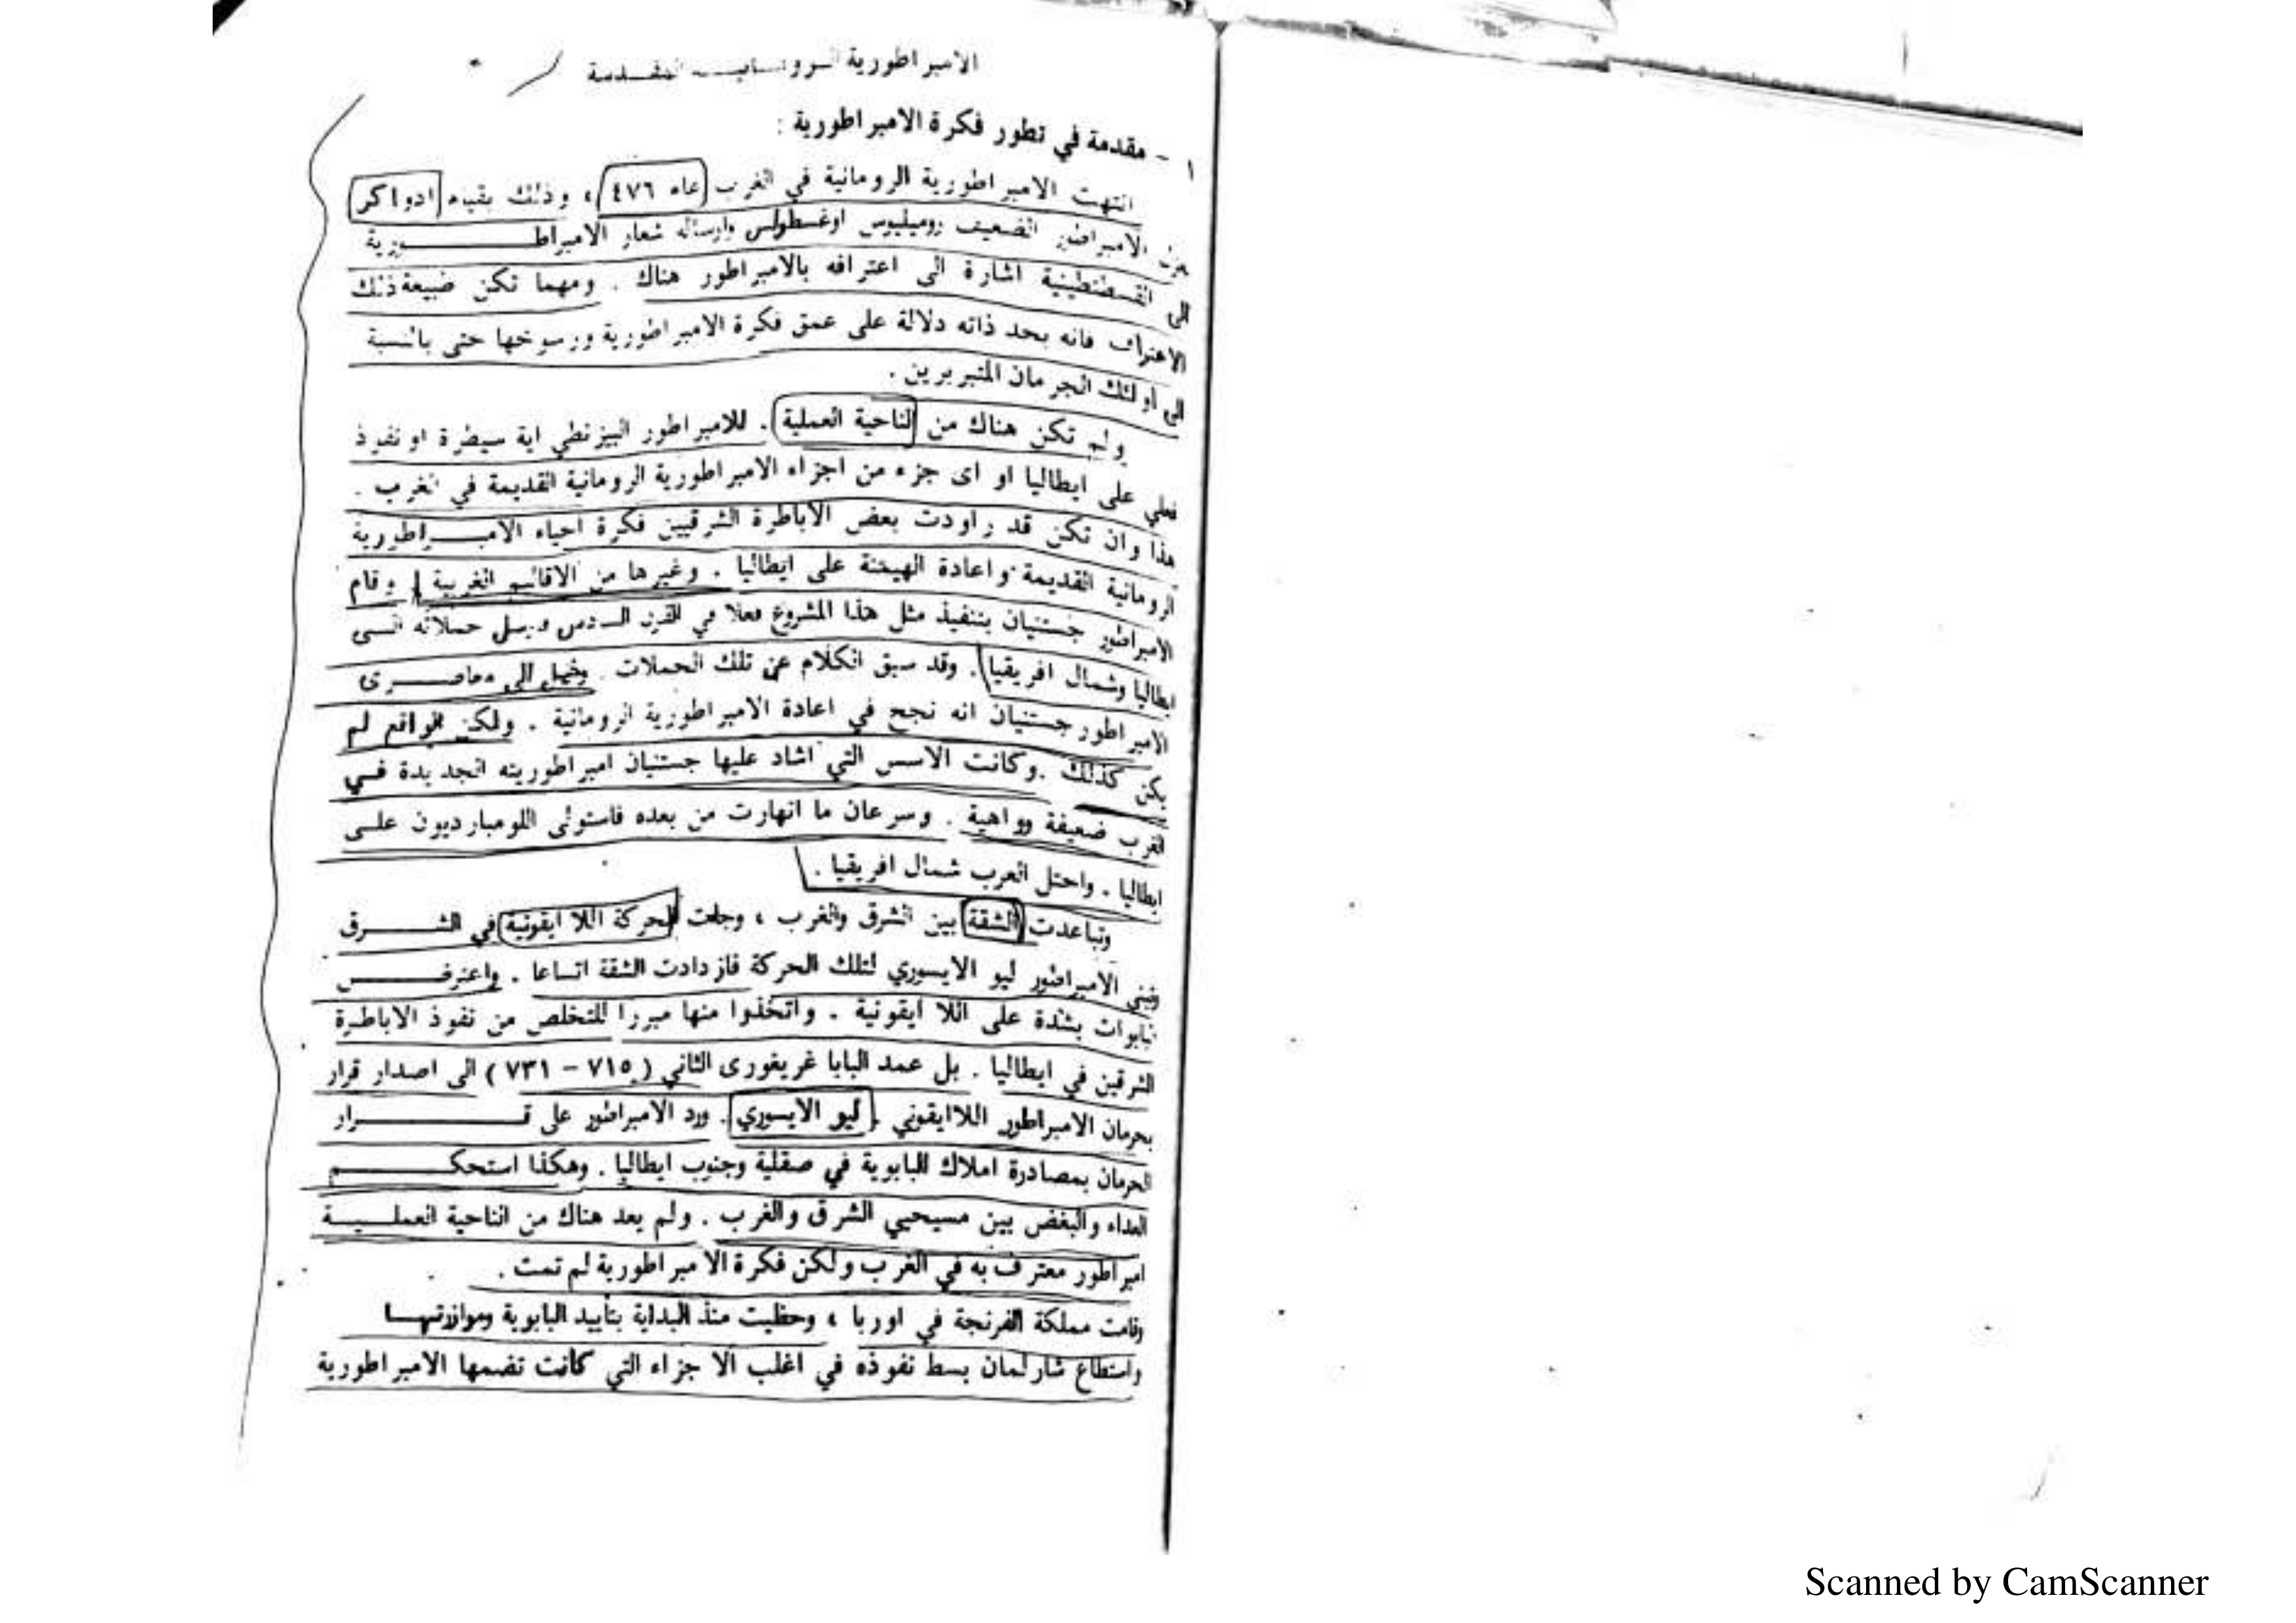 الامبراطورية الرومانية المقدسة
١ - مقدمة في تطور فكرة الامبراطورية :
انتهت الامبراطورية الرومانية في الغرب عام ٤٧٦ ، وذلك بقيام ادواكر
بعزل الامبراطور الضعيف روميليوس اوغسطولس وارساله شعار الامبراطورية
الى القسطنطينية اشارة الى اعترافه بالامبراطور هناك . ومهما تكن طبيعة ذلك
الاعتراف فانه بحد ذاته دلالة على عمق فكرة الامبراطورية ورسوخها حتى بالنسبة
الى اولئك الجرمان المتبربرين .
ولم تكن هناك من الناحية العملية . للامبراطور البيزنطي اية سيطرة او نفوذ
فعلي على ايطاليا او اى جزء من اجزاء الامبراطورية الرومانية القديمة في الغرب .
هذا وان تكن قد راودت بعض الاباطرة الشرقيين فكرة احياء الامبراطورية
الرومانية القديمة واعادة الهيمنة على ايطاليا . وغيرها من الاقاليم الغربية وقام
الامبراطور جستنيان بتنفيذ مثل هذا المشروع فعلا في القرن السادس وارسل حملاته الى
ايطاليا وشمال افريقيا . وقد سبق الكلام عن تلك الحملات . وخيل الى معاصرى
الامبراطور جستنيان انه نجح في اعادة الامبراطورية الرومانية . ولكن الواقع لم
يكن كذلك . وكانت الاسس التي اشاد عليها جستنيان امبراطوريته الجديدة في
الغرب ضعيفة وواهية . وسرعان ما انهارت من بعده فاستولى اللومبارديون على
ايطاليا . واحتل العرب شمال افريقيا .
وتباعدت الشقة بين الشرق والغرب ، وجاءت الحركة اللا ايقونية في الشرق
وتبني الامبراطور ليو الايسوري لتلك الحركة فازدادت الشقة اتساعا . واعترض
البابوات بشدة على اللا ايقونية . واتخذوا منها مبررا للتخلص من نفوذ الاباطرة
الشرقين في ايطاليا . بل عمد البابا غريغورى الثاني ( ٧١٥ - ٧٣١ ) الى اصدار قرار
بحرمان الامبراطور اللاايقوني . ليو الايسوري . ورد الامبراطور على قرار
الحرمان بمصادرة املاك البابوية في صقلية وجنوب ايطاليا . وهكذا استحكم
العداء والبغض بين مسيحيي الشرق والغرب . ولم يعد هناك من الناحية العملية
امبراطور معترف به في الغرب ولكن فكرة الامبراطورية لم تمت .
وقامت مملكة الفرنجة في اوربا ، وحظيت منذ البداية بتأييد البابوية وموازرتها
واستطاع شارلمان بسط نفوذه في اغلب الاجزاء التي كانت تضمها الامبراطورية
Scanned by CamScanner